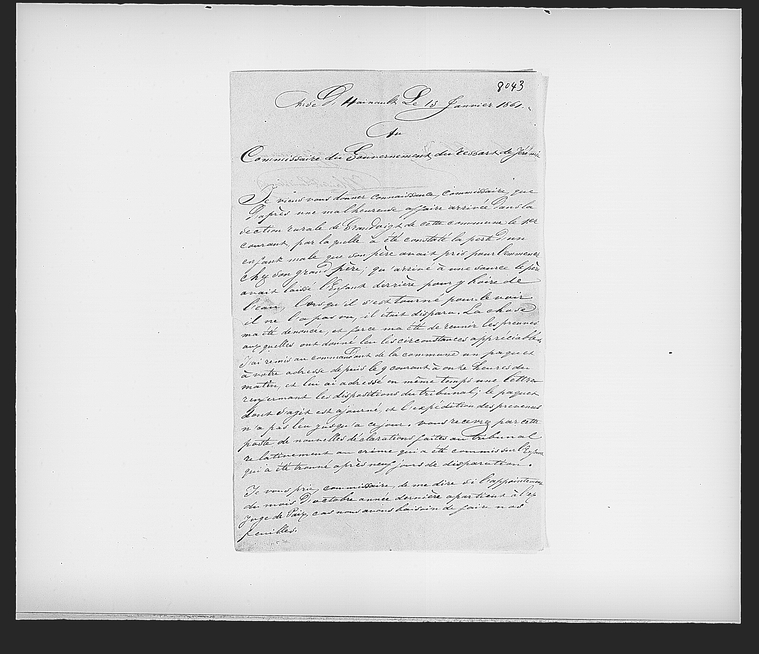 8043
Anse d'Hainault, Le 13 Janvier 1861.
Au
Commissaire du Gouvernement du ressort de Jérémie
Je viens vous donner connaissance, commissaire, que
d'après une malheureuse affaire arrivée dans la
section rurale de Grandoigt de cette commune le 1er
courant par laquelle a été constaté la perte d'un
enfant male que son père avait pris pour l'emmener
chez son grand père, qu'arrivé à une source le père
avait laissé l'Enfant derrière pour y boire de
l'eau, lorsqu'il s'est tourné pour le voir
il ne l'a pas vu, il était disparu. La chose
m'a été denoncée, et force m'a été de reunir les preuves
auxquelles ont donné lieu les circonstances appréciables
J'ai remis au commandant de la commune un paquet
à votre adresse depuis le 9 courant à onze heures du
matin, et lui ai adressé en même temps une lettre
renfermant les dispositions du tribunal; le paquet
dont s'agit est ajourné, et l'expédition des prevenus
n'a pas lieu jusqu'a ce jour, vous recevez par cette
poste de nouvelles déclarations faites au tribunal
relativement au crime qui a été commis sur l'Enfant
qui a été trouvé après neuf jours de disparution.
Je vous prie, commissaire, de me dire si l'appointement
du mois d'octobre année dernière apartient à l'ex
juge de Paix, cas nous avons besoin de faire nos
feuilles.